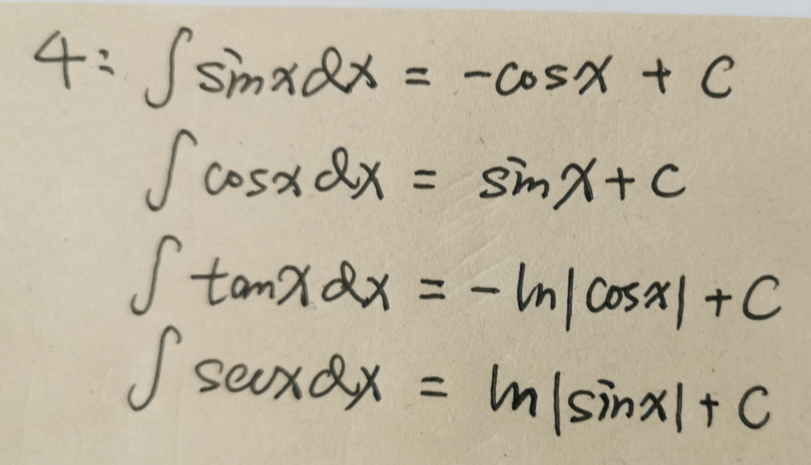 4: ∫ sinx dx = -cosx + C
∫ cosx dx = sinx + C
∫ tanx dx = -ln|cosx| + C
∫ secx dx = ln|sinx| + C